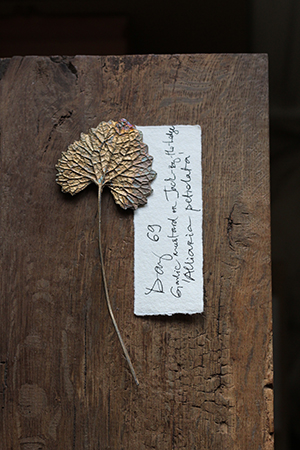 Day 69
Garlic mustard or Jack-by-the-hedge
'Alliaria petiolata'